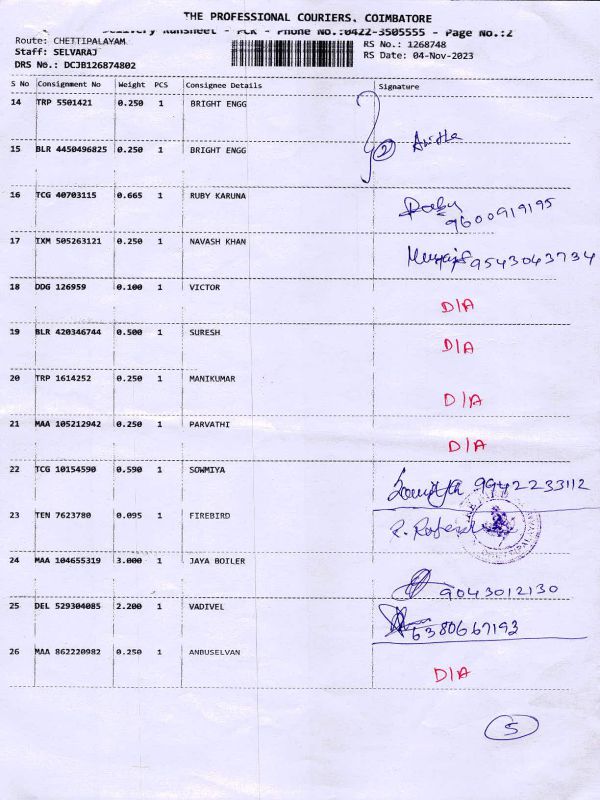 THE PROFESSIONAL COURIERS, COIMBATORE
Delivery Runsheet - PCR - Phone No.:0422-3505555 - Page No.:2
Route: CHETTIPALAYAM
Staff: SELVARAJ
DRS No.: DCJB126874802
RS No.: 1268748
RS Date: 04-Nov-2023
S No Consignment No Weight PCS Consignee Details Signature
14 TRP 5501421 0.250 1 BRIGHT ENGG
15 BLR 4450496825 0.250 1 BRIGHT ENGG 2
16 TCG 40703115 0.665 1 RUBY KARUNA Ruby
9600919195
17 IXM 505263121 0.250 1 NAVASH KHAN 9543043734
18 DDG 126959 0.100 1 VICTOR D/A
19 BLR 420346744 0.500 1 SURESH D/A
20 TRP 1614252 0.250 1 MANIKUMAR D/A
21 MAA 105212942 0.250 1 PARVATHI D/A
22 TCG 10154590 0.590 1 SOWMIYA Sowmiya 9942233112
23 TEN 7623780 0.095 1 FIREBIRD
24 MAA 104655319 3.000 1 JAYA BOILER 9043012130
25 DEL 529304085 2.200 1 VADIVEL 6380667193
26 MAA 862220982 0.250 1 ANBUSELVAN D/A
5